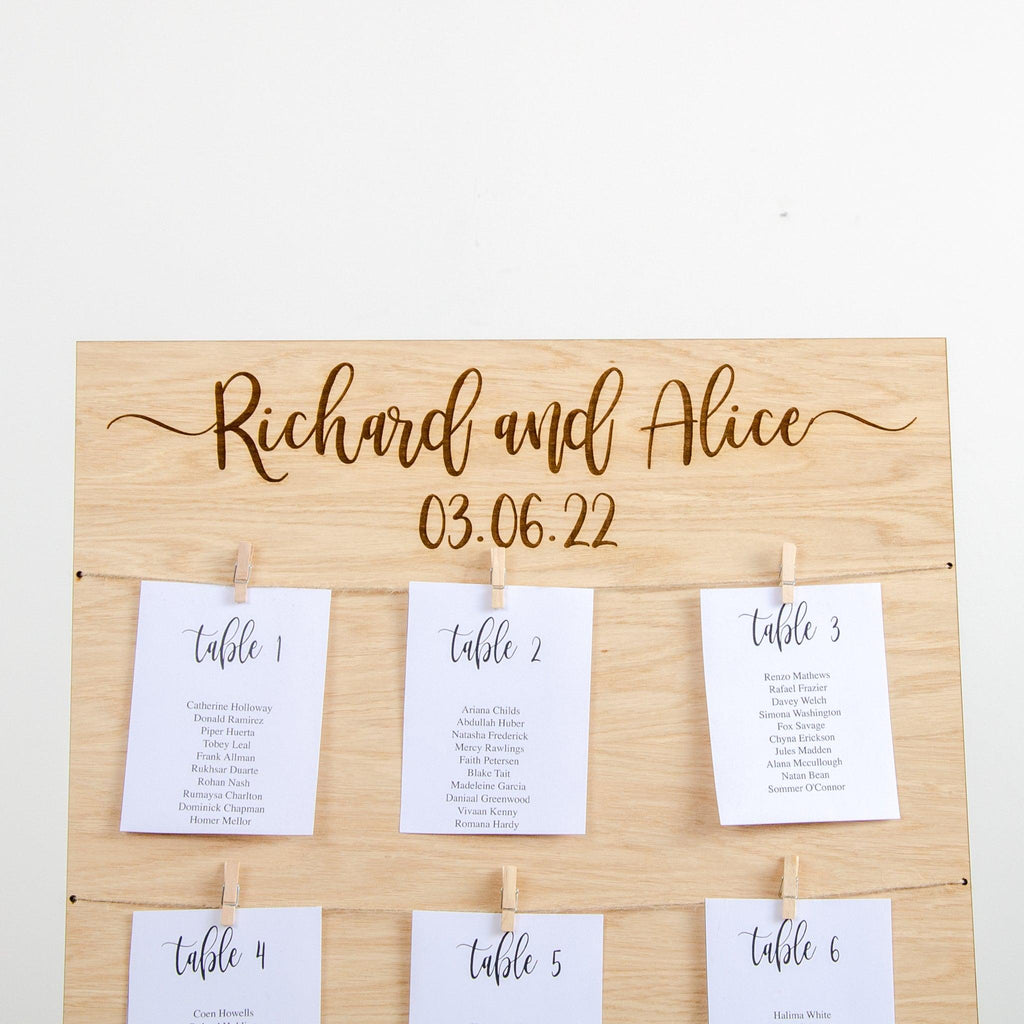 Richard and Alice
03.06.22
table 1
Catherine Holloway
Donald Ramirez
Piper Huerta
Tobey Leal
Frank Allman
Rukhsar Duarte
Rohan Nash
Rumaysa Charlton
Dominick Chapman
Homer Mellor
table 2
Ariana Childs
Abdullah Huber
Natasha Frederick
Mercy Rawlings
Faith Petersen
Blake Tait
Madeleine Garcia
Daniaal Greenwood
Vivaan Kenny
Romana Hardy
table 3
Renzo Mathews
Rafael Frazier
Davey Welch
Simona Washington
Fox Savage
Chyna Erickson
Jules Madden
Alana Mccullough
Natan Bean
Sommer O'Connor
table 4
Coen Howells
table 5
table 6
Halima White